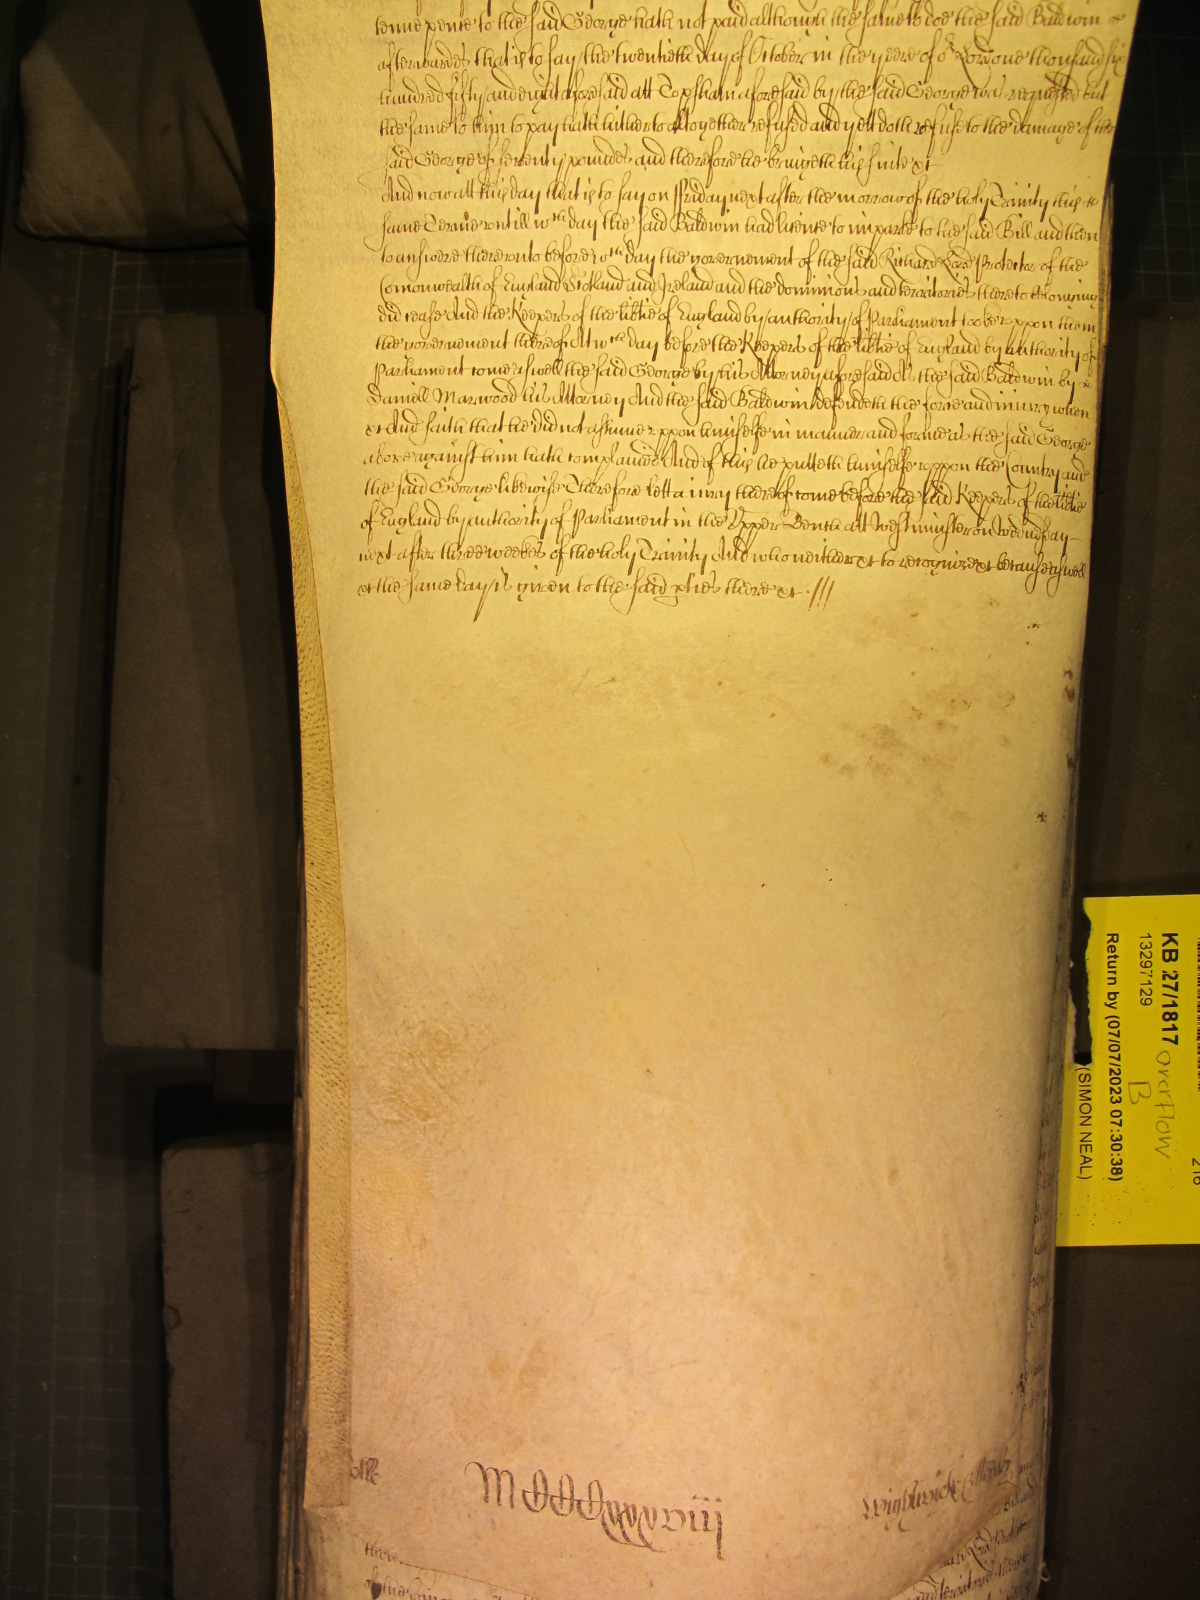 tenne pence to the said George hath not paid although the same to doe the said Baldwin
afterwardes that is to say the twentieth day of October in the yeere of or Lord one thousand six
hundred fifty and eight aforesaid att Topsham aforesaid by the said George was requested but
the same to him to pay hath hitherto altogether refused and yett doth refuse to the damage of the
said George of seventy poundes and therefore he bringeth his suite &c
And now att this day that is to say on Friday next after the morrow of the holy Trinity this
same Terme untill wch day the said Baldwin had licence to imparle to the said Bill and then
to answere thereunto before wch day the governement of the said Richard Lord Protector of the
Comonwealth of England Scotland and Ireland and the dominions and territories thereto belonging
did cease And the Keepers of the libtie of England by authority of Parliament tooke uppon them
the governement thereof At wch day before the Keepers of the libtie of England by authority of
Parliament come aswell the said George by his Attorney aforesaid As the said Baldwin by
Daniell Marwood his Attorney And the said Baldwin defendeth the force and iniury when
&c And saith that he did not assume uppon himselfe in manner and forme as the said George
above against him hath complained And of this he putteth himselfe uppon the Country and
the said George likewise Therefore lett a iury thereof come before the said Keepers of the libtie
of England by authority of Parliament in the Upper Bench att Westminster on Wednesday
next after three weekes of the holy Trinity And who neither &c to recognize &c because aswell
&c the same day is given to the said pties there &c
KB 27/1817 overflow
B
13297129
Return by (07/07/2023 07:30:38)
(SIMON NEAL)
Wightwick